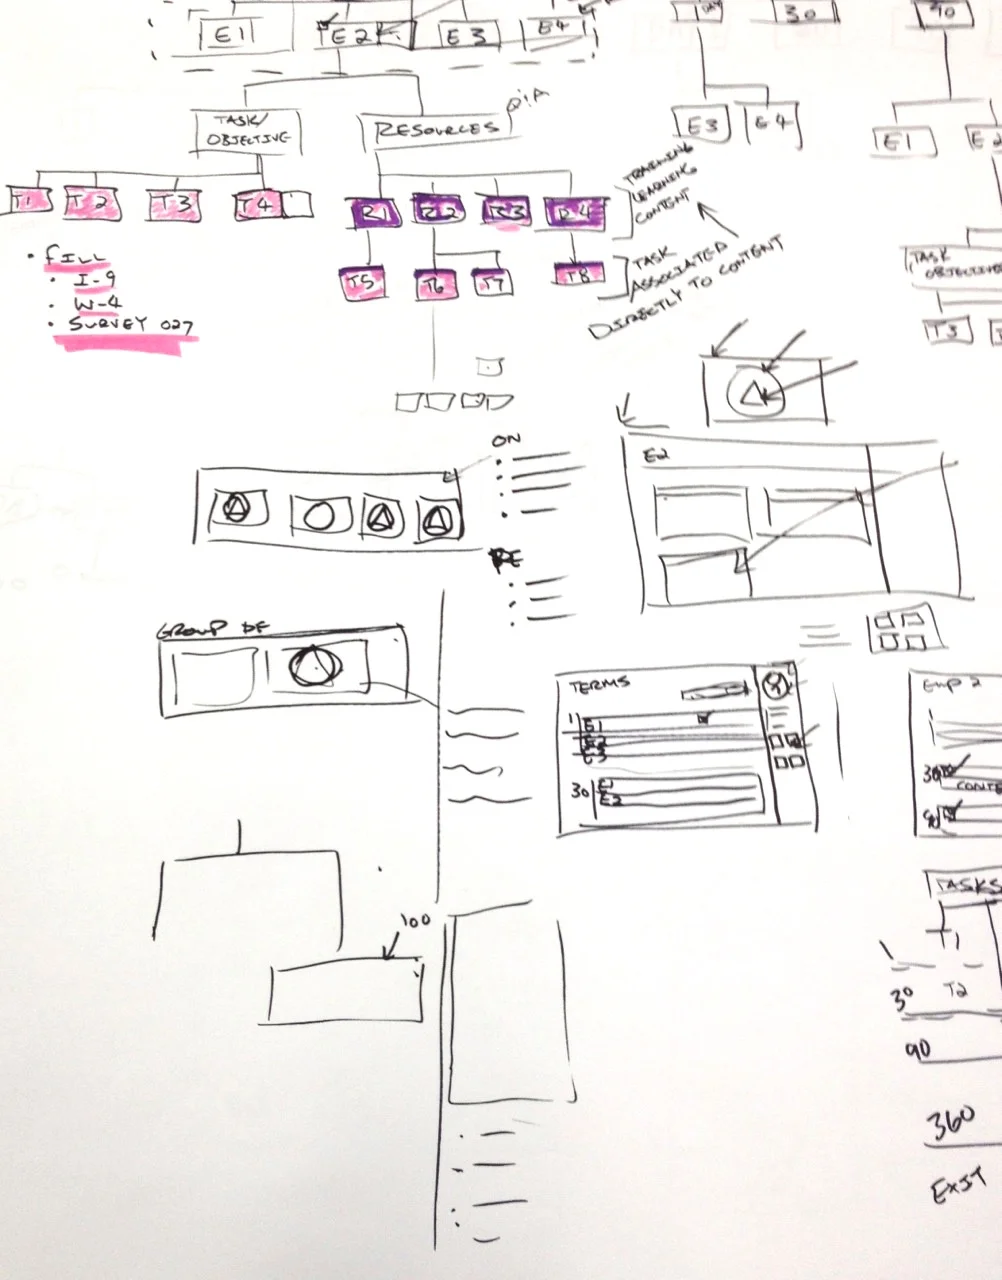 E1
E2
E3
E4
30
90
TASK/
OBJECTIVE
RESOURCES
Q:A
E3
E4
E1
E2
T1
T2
T3
T4
R1
R2
R3
R4
TRAINING
LEARNING
CONTENT
T5
T6
T7
T8
TASK
ASSOCIATED
DIRECTLY TO CONTENT
TASK
OBJECTIVE
T3
• FILL
• I-9
• W-4
• SURVEY 027
ON
E2
GROUP DE
TERMS
1
E1
E2
E3
30
E1
E2
EMP 2
1
30
CONTE
90
TASKS
T1
30
T2
90
360
EXIT
100